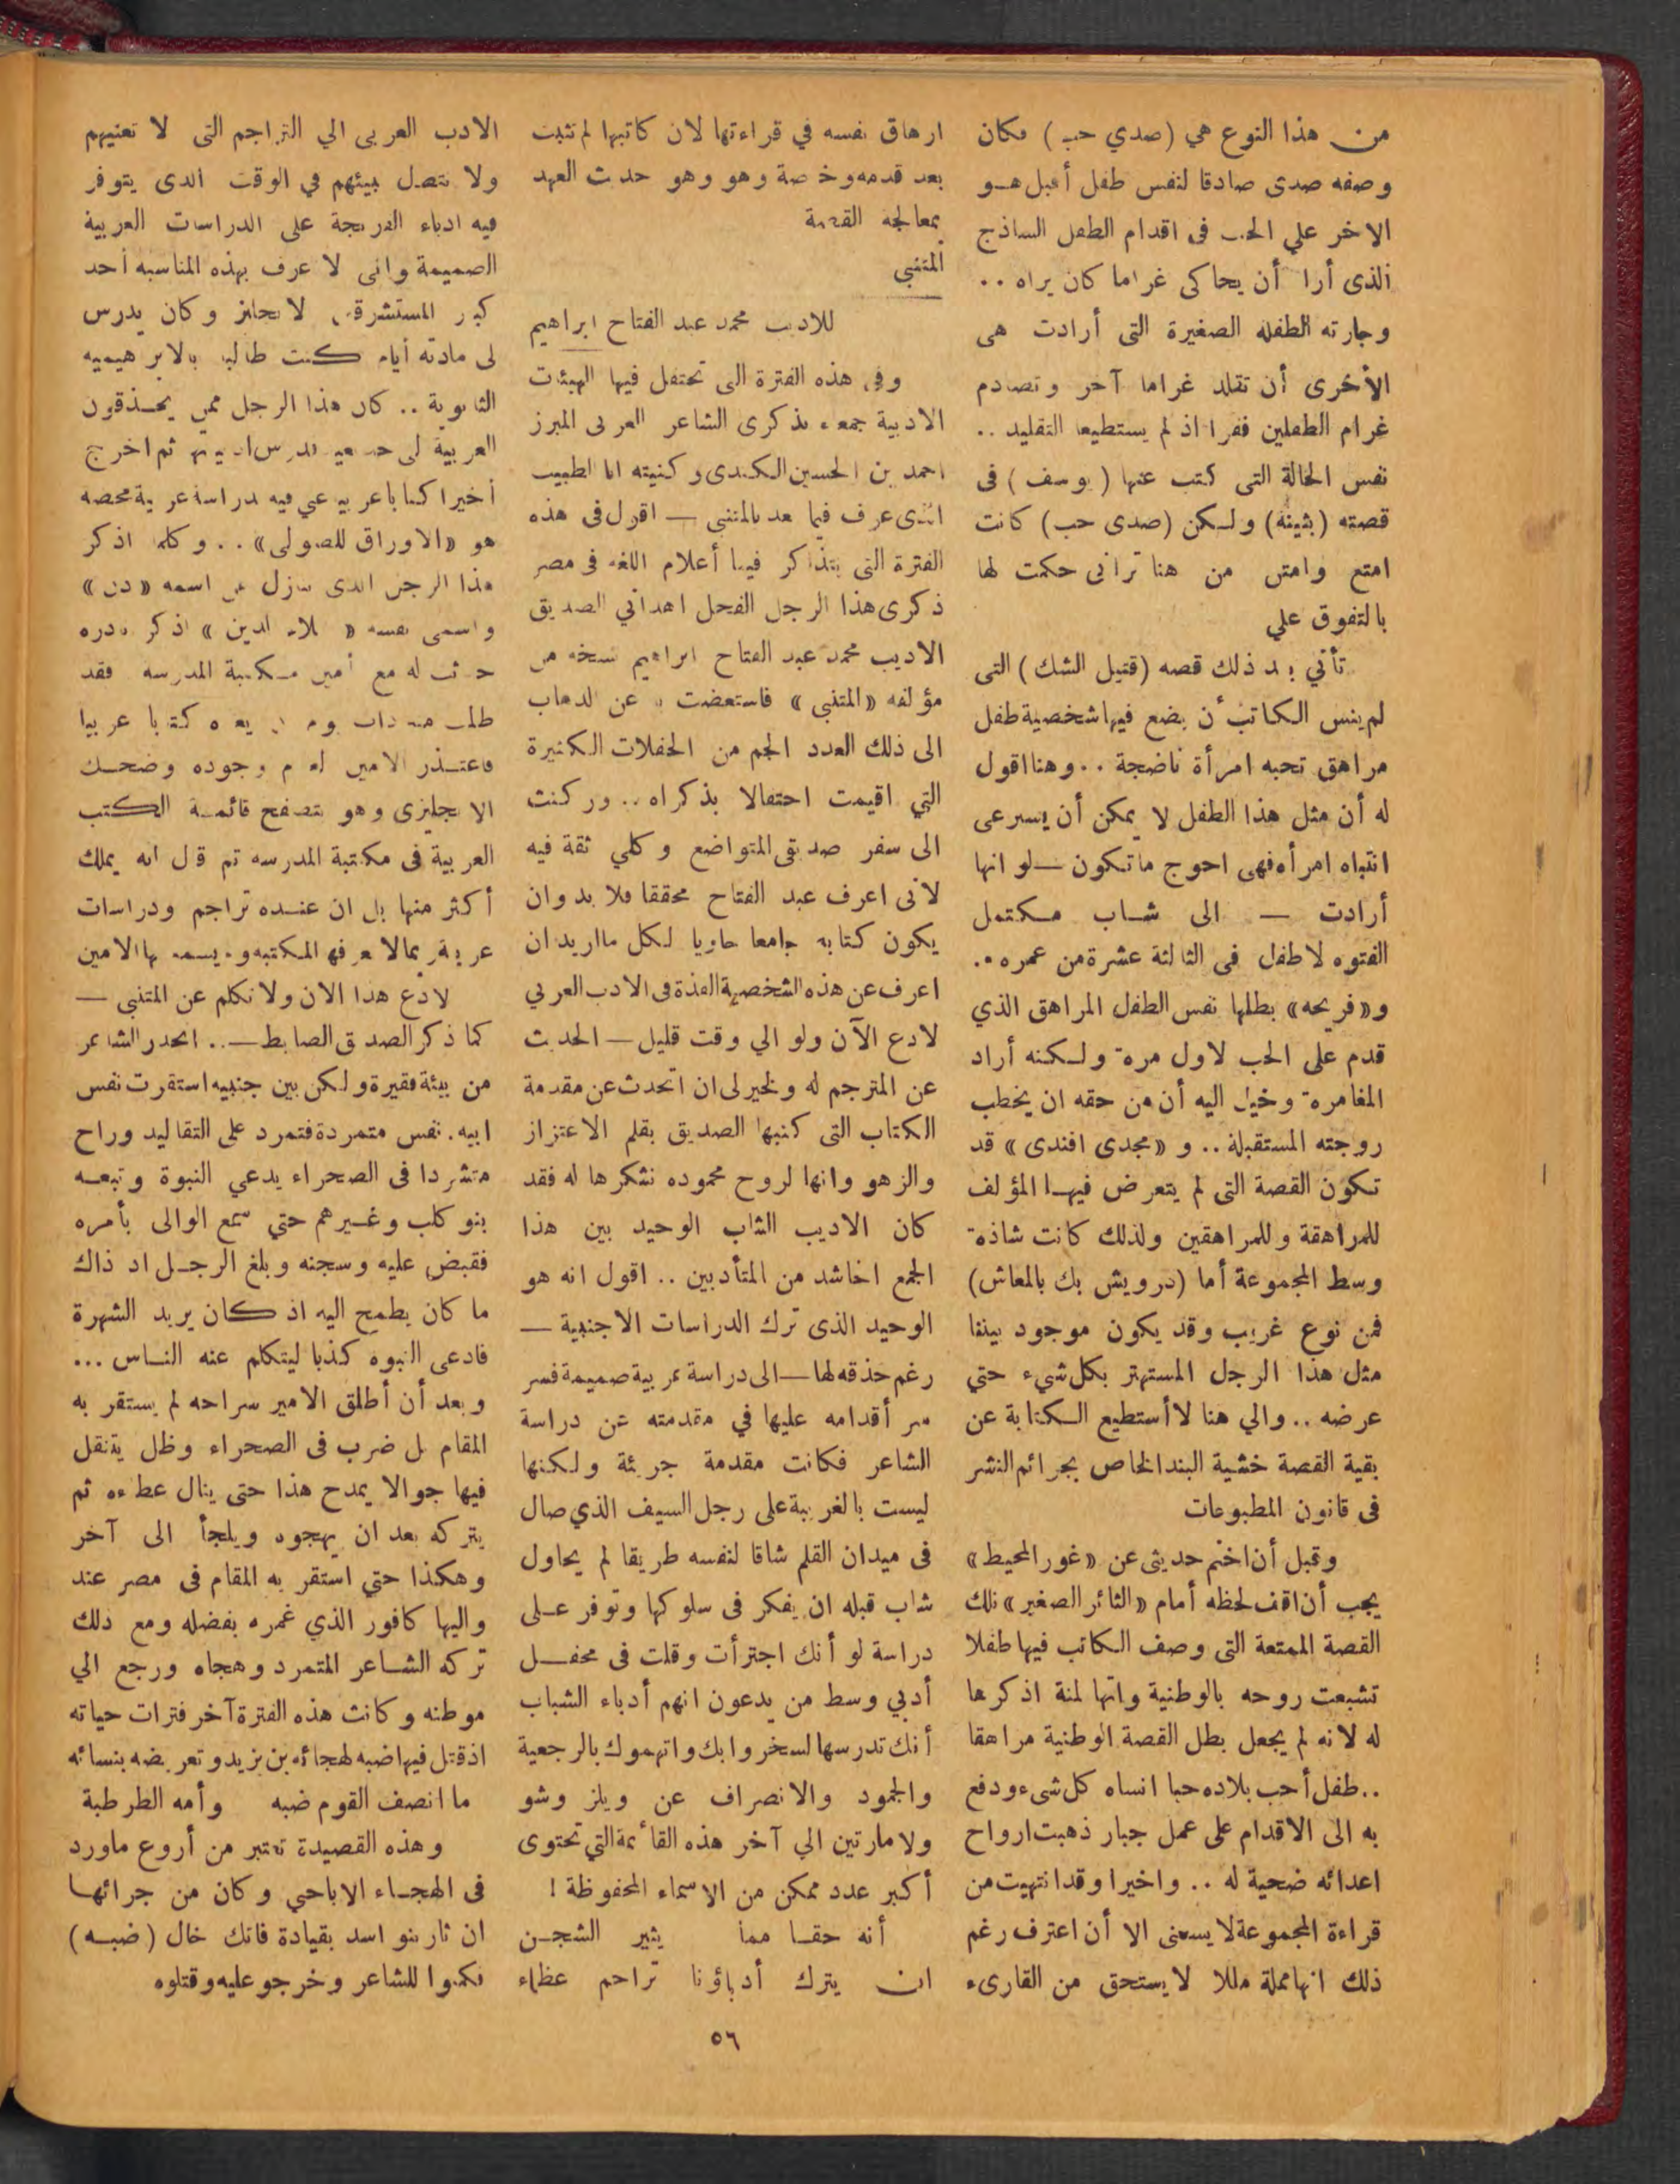 من هذا النوع هي (صدي حب) فكان
وصفه صدى صادقا لنفس طفل أقبل هــو
الاخر علي الحب فى اقدام الطفل الساذج
الذى أراد أن يحاكى غراما كان يراه ..
وجارته الطفله الصغيرة التى أرادت هى
الأخرى أن تقلد غراما آخر وتصادم
غرام الطفلين ففرا اذ لم يستطيعا التقليد ..
نفس الحالة التى كتب عنها (يوسف) فى
قصته (بثينة) ولكن (صدى حب) كانت
امتع وامتن من هنا ترانى حكمت لها
بالتفوق علي
تأتي بعد ذلك قصه (قتيل الشك) التى
لم ينس الكاتب أن يضع فيها شخصية طفل
مراهق تحبه امرأة ناضجة .. وهنا اقول
له أن مثل هذا الطفل لا يمكن أن يسرعى
انتباه امرأه فهى احوج ماتكون — لو انها
أرادت — الى شاب مكتمل
الفتوه لاطفل فى الثالثة عشرة من عمره ..
و«فريحه» بطلها نفس الطفل المراهق الذي
قدم على الحب لاول مرة ولكنه أراد
المغامرة وخيل اليه أن من حقه ان يخطب
روجته المستقبلة .. و «مجدى افندى» قد
تكون القصة التى لم يتعرض فيها المؤلف
للمراهقة وللمراهقين ولذلك كانت شاذة
وسط المجموعة أما (درويش بك بالمعاش)
فمن نوع غريب وقد يكون موجود بيننا
مثل هذا الرجل المستهتر بكل شيء حتي
عرضه .. والي هنا لا أستطيع الكتابة عن
بقية القصة خشية البند الخاص بجرائم النشر
فى قانون المطبوعات
وقبل أن اختم حديثى عن «غور المحيط»
يجب أن اقف لحظه أمام «الثائر الصغير» تلك
القصة الممتعة التى وصف الكاتب فيها طفلا
تشبعت روحه بالوطنية وانها لمنة اذكرها
له لانه لم يجعل بطل القصة الوطنية مراهقا
.. طفل أحب بلاده حبا انساه كل شىء ودفع
به الى الاقدام على عمل جبار ذهبت ارواح
اعدائه ضحية له .. واخيرا وقد انتهيت من
قراءة المجموعة لا يسعنى الا أن اعترف رغم
ذلك انها مملة مللا لا يستحق من القارىء
ارهاق نفسه في قراءتها لان كاتبها لم تثبت
بعد قدمه وخاصة وهو وهو حديث العهد
بمعالجة القصة
المتنبي
للاديب محمد عبد الفتاح ابراهيم
وفى هذه الفترة التى تحتفل فيها الهيئات
الادبية جمعاء بذكرى الشاعر العربى المبرز
احمد بن الحسين الكندى وكنيته ابا الطبيب
الذى عرف فيما بعد بالمتنبى — اقول فى هذه
الفترة التى يتذاكر فيها أعلام اللغه فى مصر
ذكرى هذا الرجل الفحل اهدانى الصديق
الاديب محمد عبد الفتاح ابراهيم نسخه من
مؤلفه «المتنبى» فاستعضت به عن الذهاب
الى ذلك العدد الجم من الحفلات الكثيرة
التي اقيمت احتفالا بذكراه .. وركنت
الى سفر صديقى المتواضع وكلي ثقة فيه
لانى اعرف عبد الفتاح محققا فلا بد وان
يكون كتابه جامعا حاويا لكل ما اريد ان
اعرف عن هذه الشخصية الفذة فى الادب العربي
لادع الآن ولو الي وقت قليل — الحديث
عن المترجم له ولخير لى ان اتحدث عن مقدمة
الكتاب التى كتبها الصديق بقلم الاعتزاز
والزهو وانها لروح محموده نشكرها له فقد
كان الاديب الشاب الوحيد بين هذا
الجمع الحاشد من المتأدبين .. اقول انه هو
الوحيد الذى ترك الدراسات الاجنبية —
رغم حذقه لها — الى دراسة عربية صميمة فسر
سر أقدامه عليها في مقدمته عن دراسة
الشاعر فكانت مقدمة جريئة ولكنها
ليست بالغريبة على رجل السيف الذي صال
فى ميدان القلم شاقا لنفسه طريقا لم يحاول
شاب قبله ان يفكر فى سلوكها وتوفر على
دراسة لو أنك اجترأت وقلت فى محفل
أدبي وسط من يدعون انهم أدباء الشباب
أنك تدرسها لسخروا بك واتهموك بالرجعية
والجمود والانصراف عن ويلز وشو
ولامارتين الي آخر هذه القائمة التي تحتوى
أكبر عدد ممكن من الاسماء المحفوظة !
أنه حقا مما يثير الشجن
ان يترك أدباؤنا تراجم عظماء
الادب العربى الي التراجم التى لا تعنيهم
ولا تتصل ببيئهم في الوقت الذى يتوفر
فيه ادباء الفرنجة على الدراسات العربية
الصميمة وانى لا عرف بهذه المناسبه أحد
كبار المستشرقين الانجليز وكان يدرس
لى مادته أيام كنت طالبا بالابراهيميه
الثانوية .. كان هذا الرجل ممن يحذقون
العربية لى حد ثم اخرج
أخيرا كتابا عربيا عني فيه بدراسة عربية محضه
هو «الاوراق للصولى» .. وكلما اذكر
هذا الرجل الذى تنازل عن اسمه «دن»
واسمى نفسه الدين» اذكر نادره
حدثت له مع أمين مكتبة المدرسه فقد
طلب منه ذات يوم كتابا عربيا
فاعتذر الامين لعدم وجوده وضحك
الانجليزى وهو يتصفح قائمة الكتب
العربية فى مكتبة المدرسه ثم قال انه يملك
أكثر منها بل ان عنده تراجم ودراسات
عربية المكتبه بها الامين
لادع هذا الان ولا تكلم عن المتنبى —
كما ذكر الصديق الضابط — .. انحدر الشاعر
من بيئة فقيرة ولكن بين جنبيه استقرت نفس
ابيه . نفس متمردة فتمرد على التقاليد وراح
متشردا فى الصحراء يدعي النبوة وتبعه
بنو كلب وغيرهم حتي سمع الوالى بأمره
فقبض عليه وسجنه وبلغ الرجل اذ ذاك
ما كان يطمح اليه اذ كان يريد الشهرة
فادعى النبوه كذبا ليتكلم عنه الناس ...
وبعد أن أطلق الامير سراحه لم يستقر به
المقام بل ضرب فى الصحراء وظل يتنقل
فيها جوالا يمدح هذا حتى ينال عطاءه ثم
يتركه بعد ان يهجوه ويلجأ الى آخر
وهكذا حتي استقر به المقام فى مصر عند
واليها كافور الذي غمره بفضله ومع ذلك
تركه الشاعر المتمرد وهجاه ورجع الي
موطنه وكانت هذه الفترة آخر فترات حياته
اذ قتل فيها ضبه لهجائه بن يزيد وتعريضه بنسائه
ما انصف القوم ضبه وأمه الطرطبة
وهذه القصيدة تعتبر من أروع ماورد
فى الهجاء الاباحي وكان من جرائها
ان ثار بنو اسد بقيادة فاتك خال (ضبه)
فكمنوا للشاعر وخرجو عليه وقتلوه
٥٦